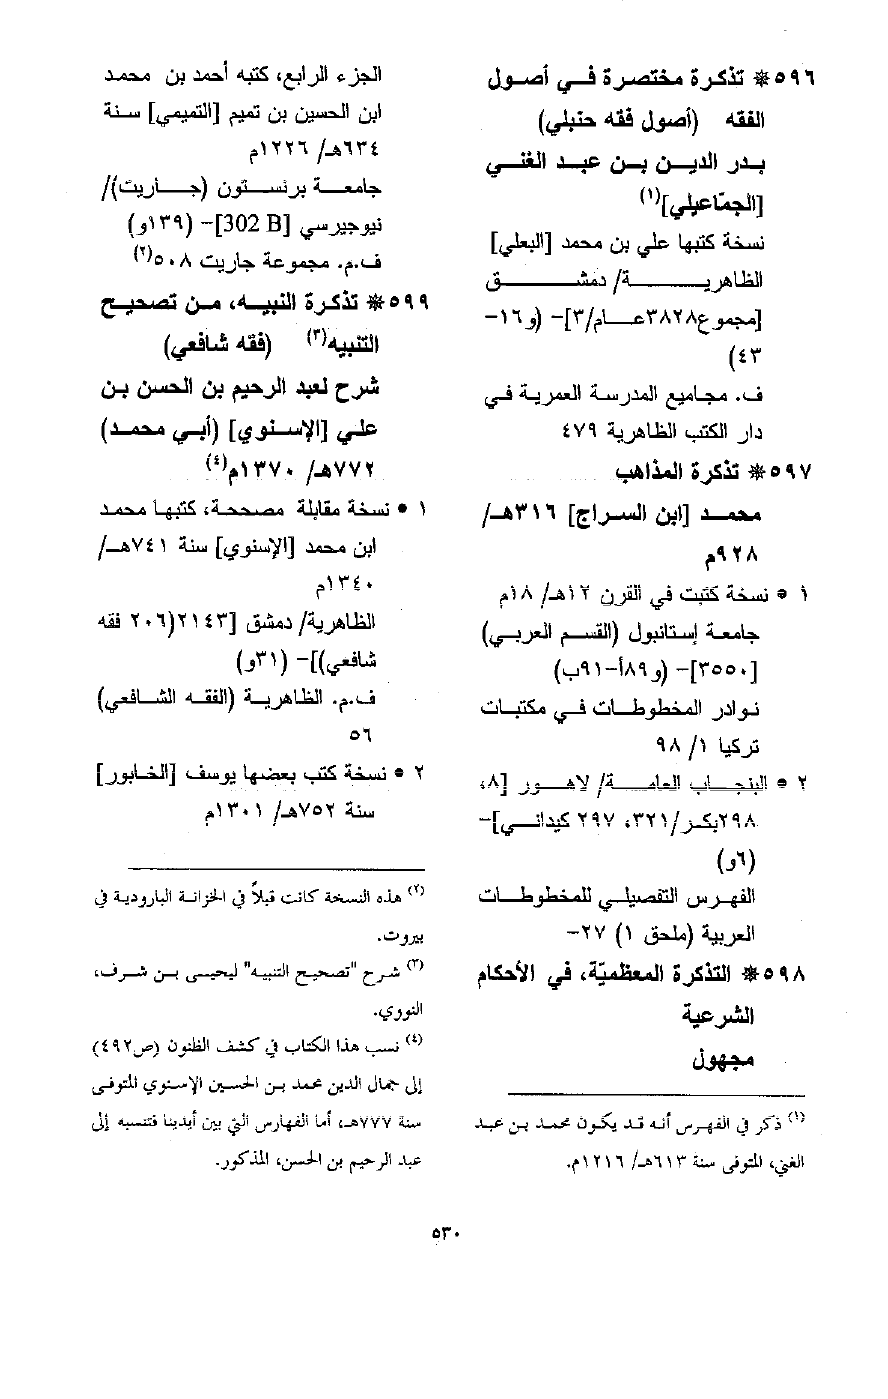 ٥٩٦* تذكرة مختصرة في أصول
الفقه (أصول فقه حنبلي)
بدر الدين بن عبد الغني
[الجمّاعيلي](١)
نسخة كتبها علي بن محمد [البعلي]
الظاهرية/ دمشق
[مجموع٣٨٢٨عام/٣]- (و١٦-
٤٣)
ف. مجاميع المدرسة العمرية في
دار الكتب الظاهرية ٤٧٩
٥٩٧* تذكرة المذاهب
محمد [ابن السراج] ٣١٦هـ/
٩٢٨م
١ • نسخة كتبت في القرن ١٢هـ/ ١٨م
جامعة إستانبول (القسم العربي)
[٣٥٥٠]- (و٨٩أ-٩١ب)
نوادر المخطوطات في مكتبات
تركيا ١/ ٩٨
٢ • البنجاب العامة/ لاهور [٨،
٢٩٨بكر/٣٢١، ٢٩٧ كيداني]-
(٦و)
الفهرس التفصيلي للمخطوطات
العربية (ملحق ١) ٢٧-
٥٩٨* التذكرة المعظميّة، في الأحكام
الشرعية
مجهول
(١) ذكر في الفهرس أنه قد يكون محمد بن عبد
الغني، المتوفى سنة ٦١٣هـ/ ١٢١٦م.
الجزء الرابع، كتبه أحمد بن محمد
ابن الحسين بن تميم [التميمي] سنة
٦٣٤هـ/ ١٢٢٦م
جامعة برنستون (جاريت)/
نيوجيرسي [302 B]- (١٣٩و)
ف.م. مجموعة جاريت ٥٠٨(٢)
٥٩٩* تذكرة النبيه، من تصحيح
التنبيه(٣) (فقه شافعي)
شرح لعبد الرحيم بن الحسن بن
علي [الإسنوي] (أبي محمد)
٧٧٢هـ/ ١٣٧٠م(٤)
١ • نسخة مقابلة مصححة، كتبها محمد
ابن محمد [الإسنوي] سنة ٧٤١هـ/
١٣٤٠م
الظاهرية/ دمشق [٢١٤٣(٢٠٦ فقه
شافعي)]- (٣١و)
ف.م. الظاهرية (الفقه الشافعي)
٥٦
٢ • نسخة كتب بعضها يوسف [الخابور]
سنة ٧٥٢هـ/ ١٣٠١م
(٢) هذه النسخة كانت قبلاً في الخزانة البارودية في
بيروت.
(٣) شرح "تصحيح التنبيه" ليحيى بن شرف،
النووي.
(٤) نسب هذا الكتاب في كشف الظنون (ص٤٩٢)
إلى جمال الدين محمد بن الحسين الإسنوي المتوفى
سنة ٧٧٧هـ، أما الفهارس التي بين أيدينا فتنسبه إلى
عبد الرحيم بن الحسن، المذكور.
٥٣٠